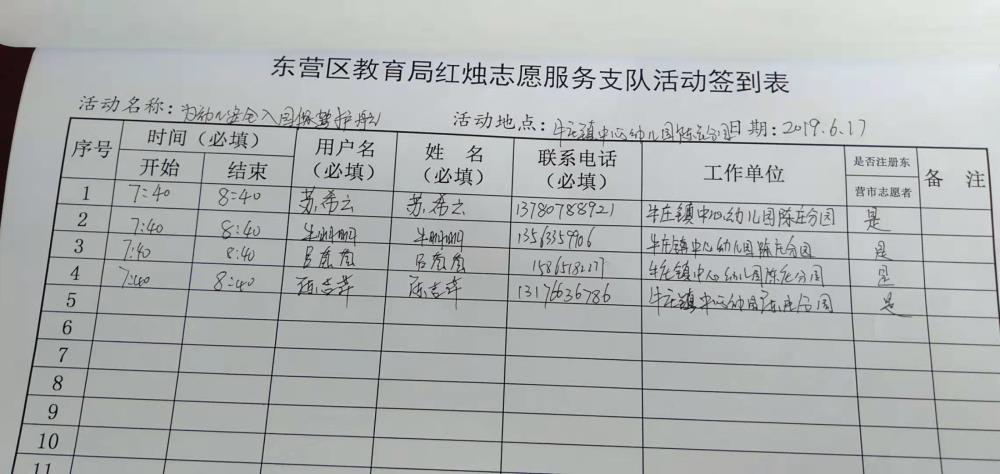 东营区教育局红烛志愿服务支队活动签到表
活动名称：为幼儿安全入园保驾护航 活动地点：牛庄镇中心幼儿园陈庄分园 日期：2019.6.17
序号 时间（必填） 用户名（必填） 姓 名（必填） 联系电话（必填） 工作单位 是否注册东营市志愿者 备 注
开始 结束
1 7:40 8:40 苏希云 苏希云 13780788921 牛庄镇中心幼儿园陈庄分园 是
2 7:40 8:40 牛 牛 牛庄镇中心幼儿园陈庄分园 是
3 7:40 8:40 吕 吕 牛庄镇中心幼儿园陈庄分园 是
4 7:40 8:40 陈吉萍 陈吉萍 13176636786 牛庄镇中心幼园陈庄分园 是
5
6
7
8
9
10
11